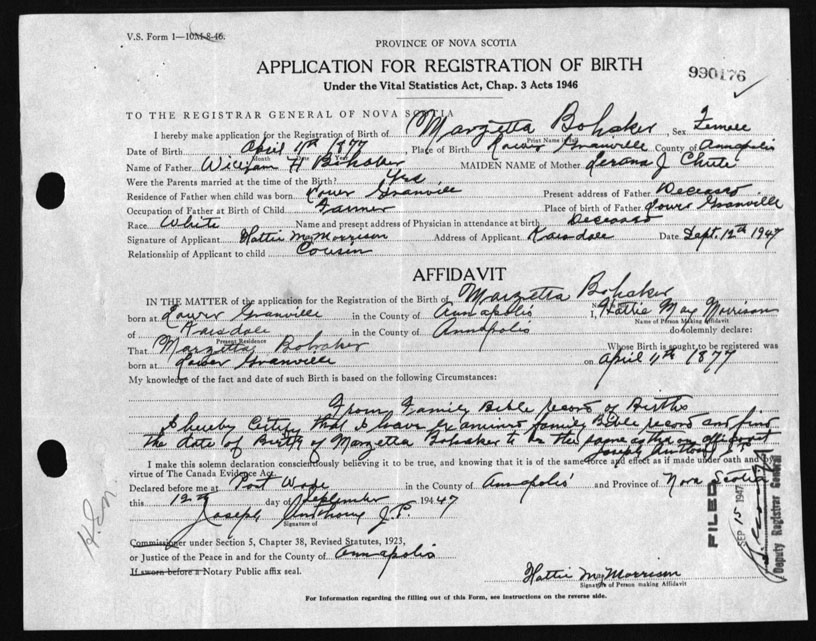 V.S. Form 1—10M-8-46.
PROVINCE OF NOVA SCOTIA
APPLICATION FOR REGISTRATION OF BIRTH
990176
Under the Vital Statistics Act, Chap. 3 Acts 1946
TO THE REGISTRAR GENERAL OF NOVA SCOTIA
I hereby make application for the Registration of Birth of Marzetta Bohaker, Sex Female
Print Name in Full
Date of Birth April 11th 1877, Place of Birth Lower Granville County of Annapolis
Month Day Year
Name of Father William H Bohaker MAIDEN NAME of Mother J. Chute
Were the Parents married at the time of Birth? Yes
Residence of Father when child was born Lower Granville Present address of Father Deceased
Occupation of Father at Birth of Child Farmer Place of birth of Father Lower Granville
Race White Name and present address of Physician in attendance at birth Deceased
Signature of Applicant Hattie May Morrison Address of Applicant Karsdale Date Sept. 12th 1947
Relationship of Applicant to child Cousin
AFFIDAVIT
IN THE MATTER of the application for the Registration of the Birth of Marzetta Bohaker
born at Lower Granville in the County of Annapolis I, Hattie May Morrison
Name of Person Making Affidavit
of Karsdale in the County of Annapolis do solemnly declare:
Present Residence
That Marzetta Bohaker Whose Birth is sought to be registered was
born at Lower Granville on April 11th 1877
My knowledge of the fact and date of such Birth is based on the following Circumstances:
From Family Bible record of Births
I hereby Certify that I have examined family Bible record and find
the date of Birth of Marzetta Bohaker to be the same as that on affidavit
Joseph Anthony J.P.
I make this solemn declaration conscientiously believing it to be true, and knowing that it is of the same force and effect as if made under oath and by
virtue of The Canada Evidence Act.
Declared before me at Port Wade in the County of Annapolis and Province of Nova Scotia
this 12th day of September 194 47
Joseph Anthony J.P.
Signature of
Commissioner under Section 5, Chapter 38, Revised Statutes, 1923,
or Justice of the Peace in and for the County of Annapolis
If sworn before a Notary Public affix seal.
Hattie May Morrison
Signature of Person making Affidavit
For Information regarding the filling out of this Form, see instructions on the reverse side.
FILED
SEP 15 1947
Deputy Registrar General